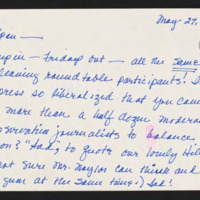 May 27,
pin — Fridays out — all the same
leaning roundtable participants!
press so liberalized that you can
more than a half dozen modera
servative journalists to balance
on? "Sad," to quote our lovely Hil
not sure Mr. Naylor can think and
gum at the same time.) Sad!